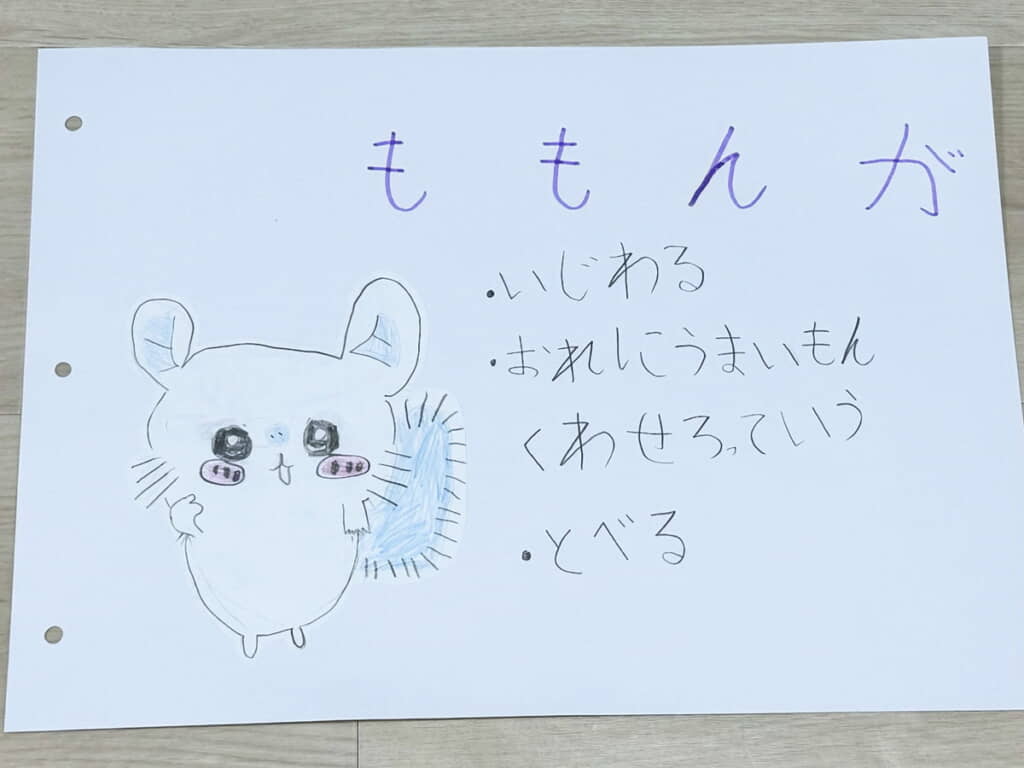 ももんが
・いじわる
・おれにうまいもん
くわせろっていう
・とべる